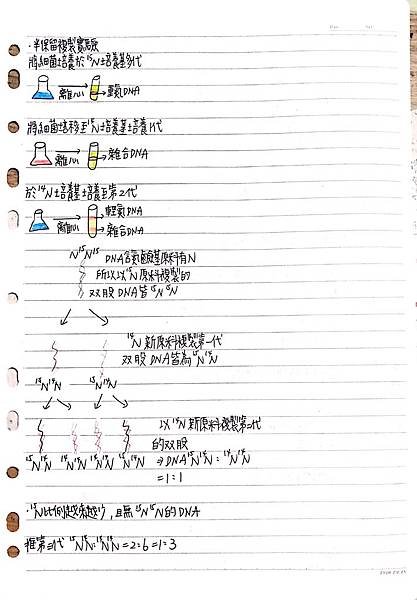 ・半保留複製實驗
將細菌培養於¹⁵N培養基多代
離心
重氮DNA
將細菌培移至¹⁴N培養基培養1代
離心
雜合DNA
於¹⁴N培養基培養至第2代
離心
輕氮DNA
雜合DNA
N¹⁵N¹⁵ DNA含氮鹼基原料有N
所以以¹⁵N原料複製的
双股DNA皆¹⁵N¹⁵N
¹⁴N新原料複製第一代
双股DNA皆為¹⁵N¹⁴N
¹⁵N¹⁴N ¹⁵N¹⁴N
以¹⁴N新原料複製第2代
的双股
¹⁵N¹⁴N ¹⁴N¹⁴N ¹⁴N¹⁴N ¹⁵N¹⁴N ⇒DNA¹⁵N¹⁴N：¹⁴N¹⁴N
=1:1
・¹⁵N比例越來越少，且無¹⁵N¹⁵N的DNA
推第三代¹⁵N¹⁴N:¹⁴N¹⁴N=2:6=1:3